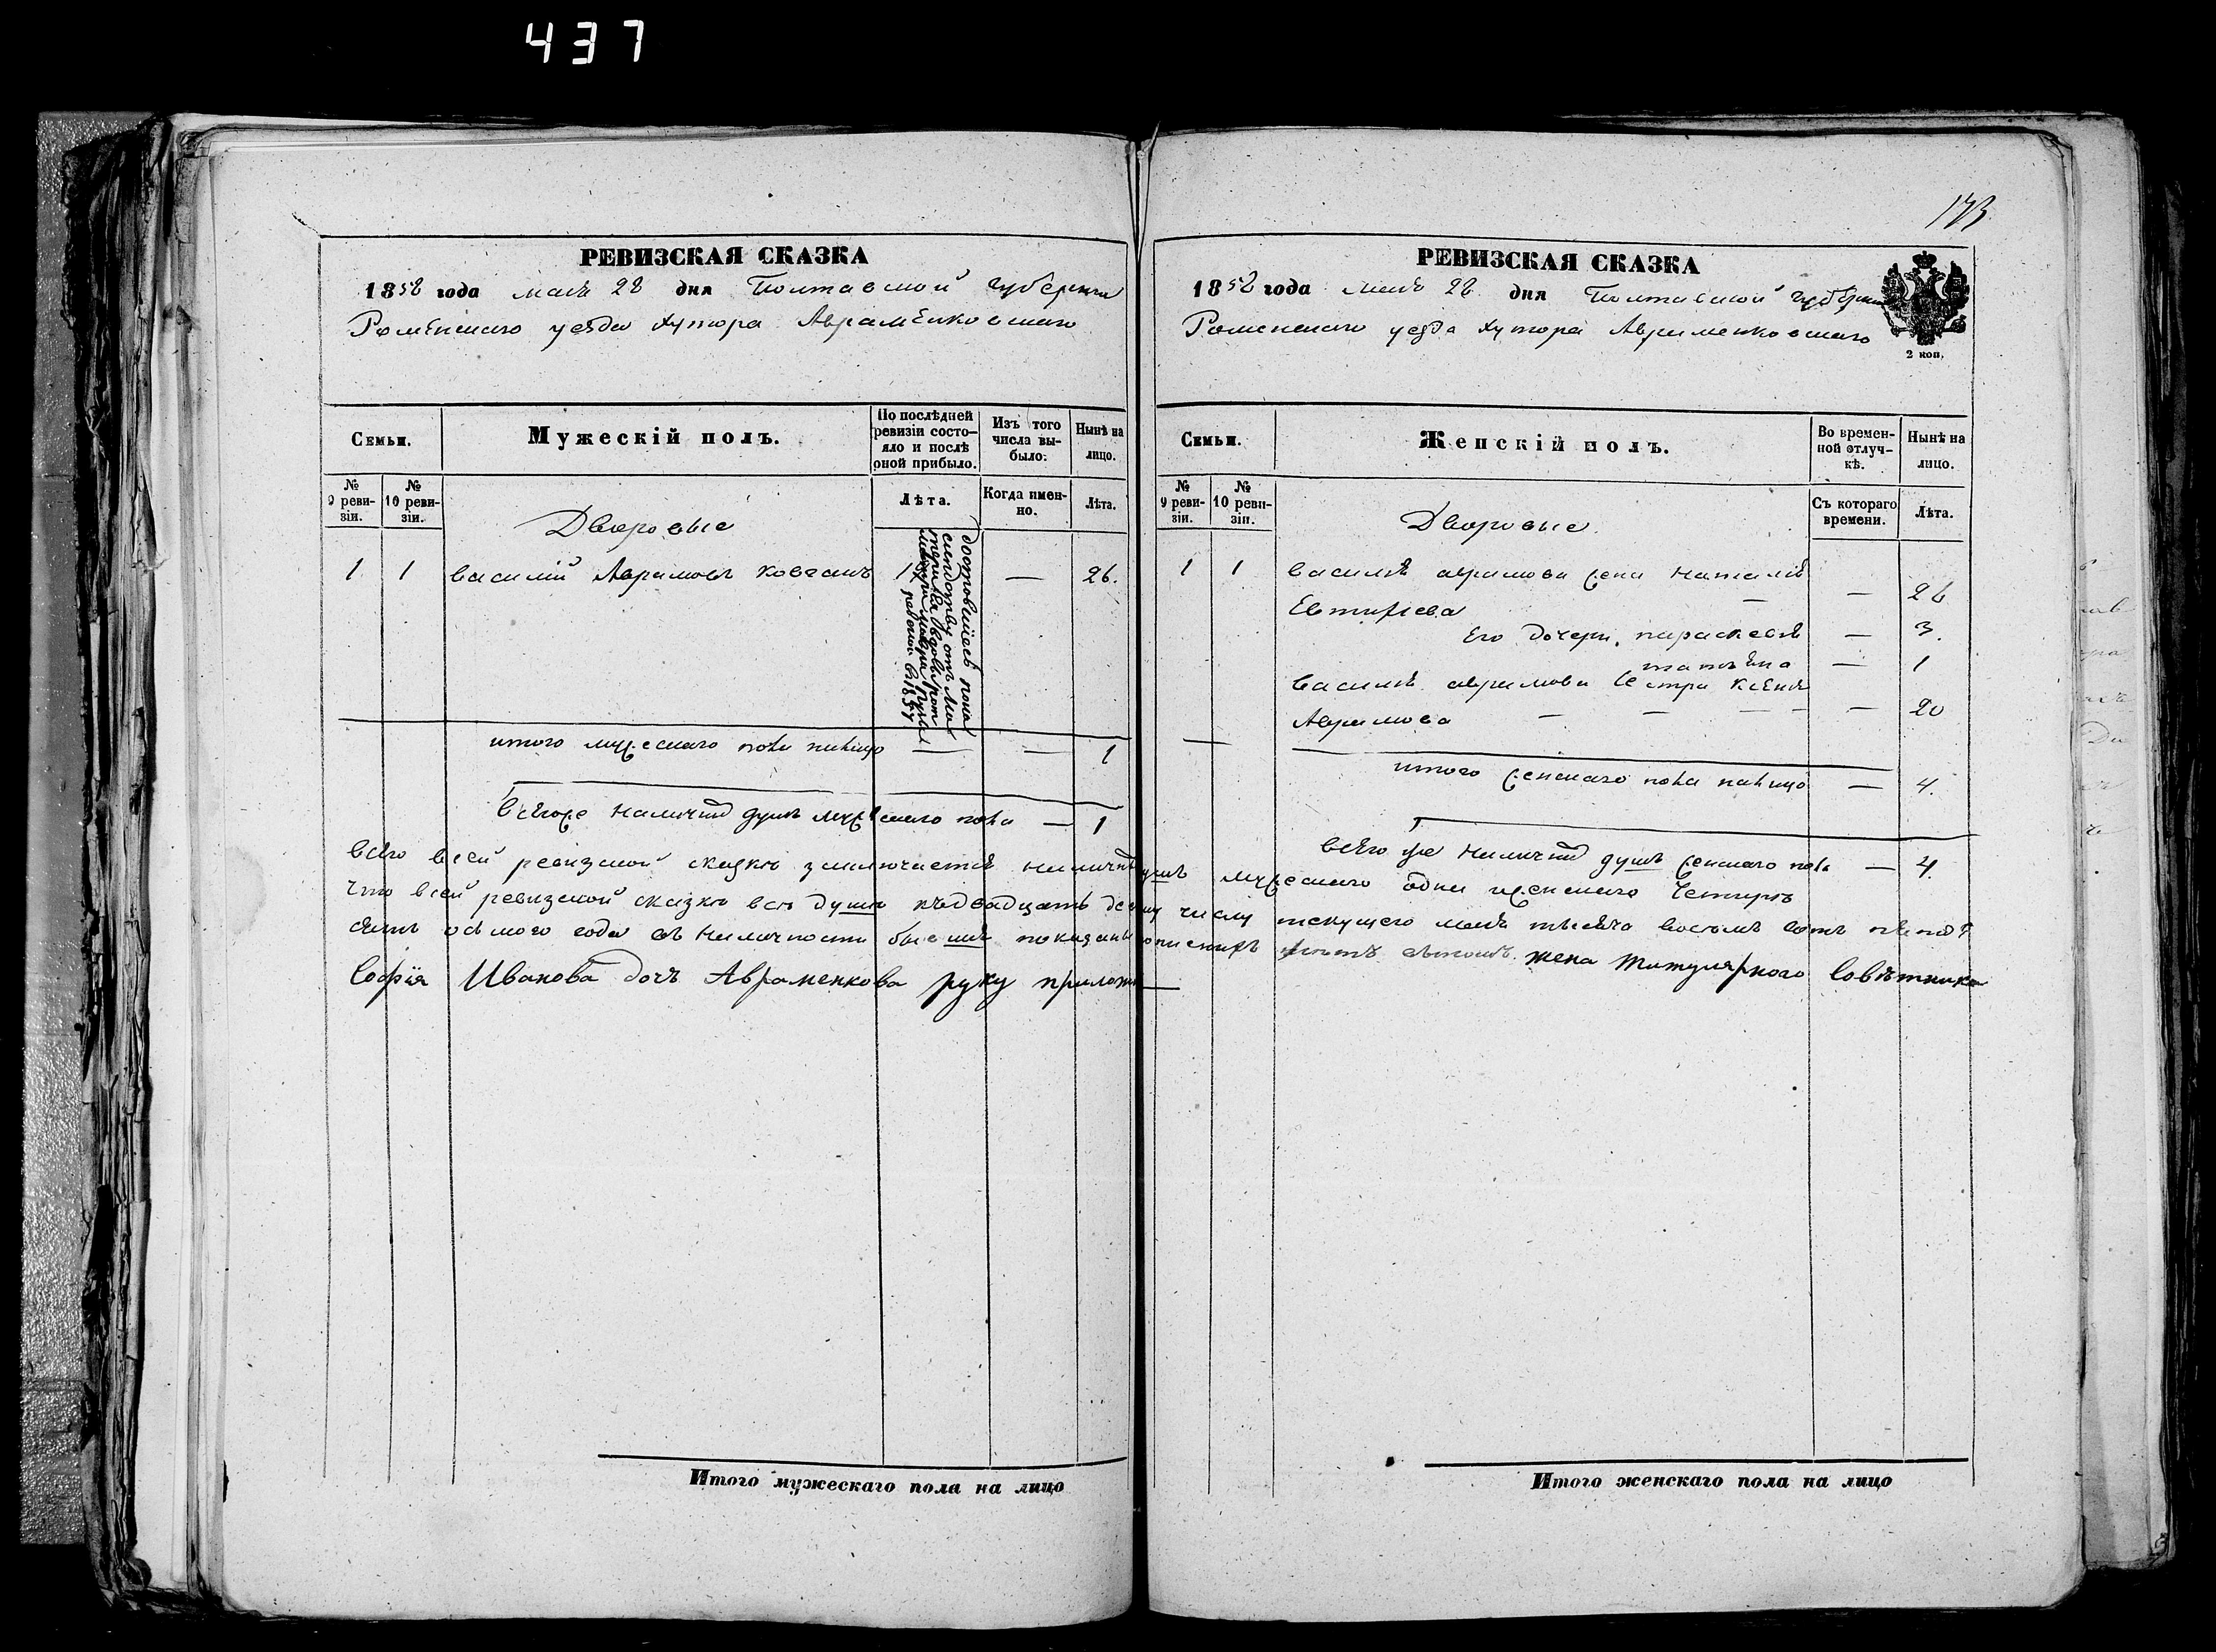 437
173
РЕВИЗСКАЯ СКАЗКА
1858 года мая 28 дня Полтавской губернии
Роменскаго уезда хутора Авраменковскаго
Семьи.
Мужескій полъ.
По послѣдней ревизіи состояло и послѣ оной прибыло.
Изъ того числа выбыло.
Нынѣ на лицо.
№ 9 ревизіи.
№ 10 ревизіи.
Лѣта.
Когда именно.
Лѣта.
Дворовые
1 1 Василій Аврамовъ Ковганъ — 26.
итого мужескаго пола налицо — — 1
всегоже наличнихъ душъ мужескаго пола — 1
РЕВИЗСКАЯ СКАЗКА
1858 года мая 28 дня Полтавской губернии
Роменскаго уезда хутора Авраменковскаго
2 коп.
Семьи.
Женскій полъ.
Во временной отлучкѣ.
Нынѣ на лицо.
№ 9 ревизіи.
№ 10 ревизіи.
Съ котораго времени.
Лѣта.
Дворовые.
1 1 Василія аврамова жена Наталія
Евтифіева — — 26
Его дочери. параскевія — 3.
татьяна — 1
Василія аврамова сестра Ксенія
Аврамова — — — — — 20
итого женскаго пола налицо — 4.
всего же наличнихъ душъ женскаго пола — 4.
всего всей ревизской сказки заключается наличнихъ душъ мужескаго одна женскаго четыре
что всей ревизской сказки все души числу текущего мая
осмого года въ наличности бывшие показаны жена титулярного Совѣтника
Софія Иванова дочь Авраменкова руку приложи—
Итого мужескаго пола на лицо
Итого женскаго пола на лицо